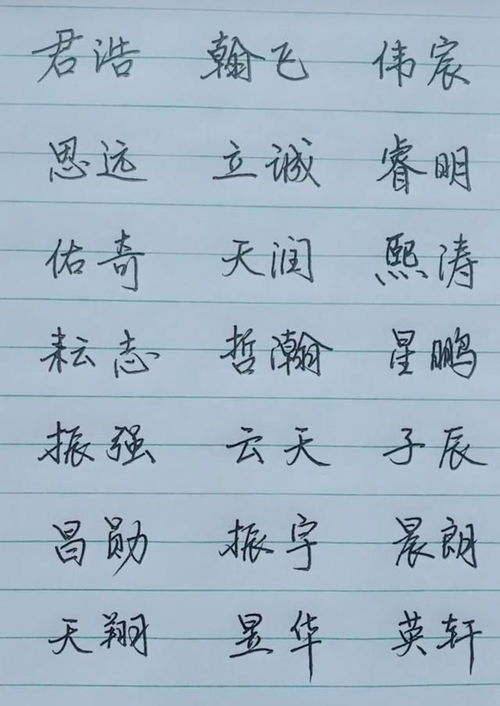 君浩 翰飞 伟宸
思远 立诚 睿明
佑奇 天润 熙涛
耘志 哲瀚 星鹏
振强 云天 子辰
昌勋 振宇 晨朗
天翔 昱华 英轩